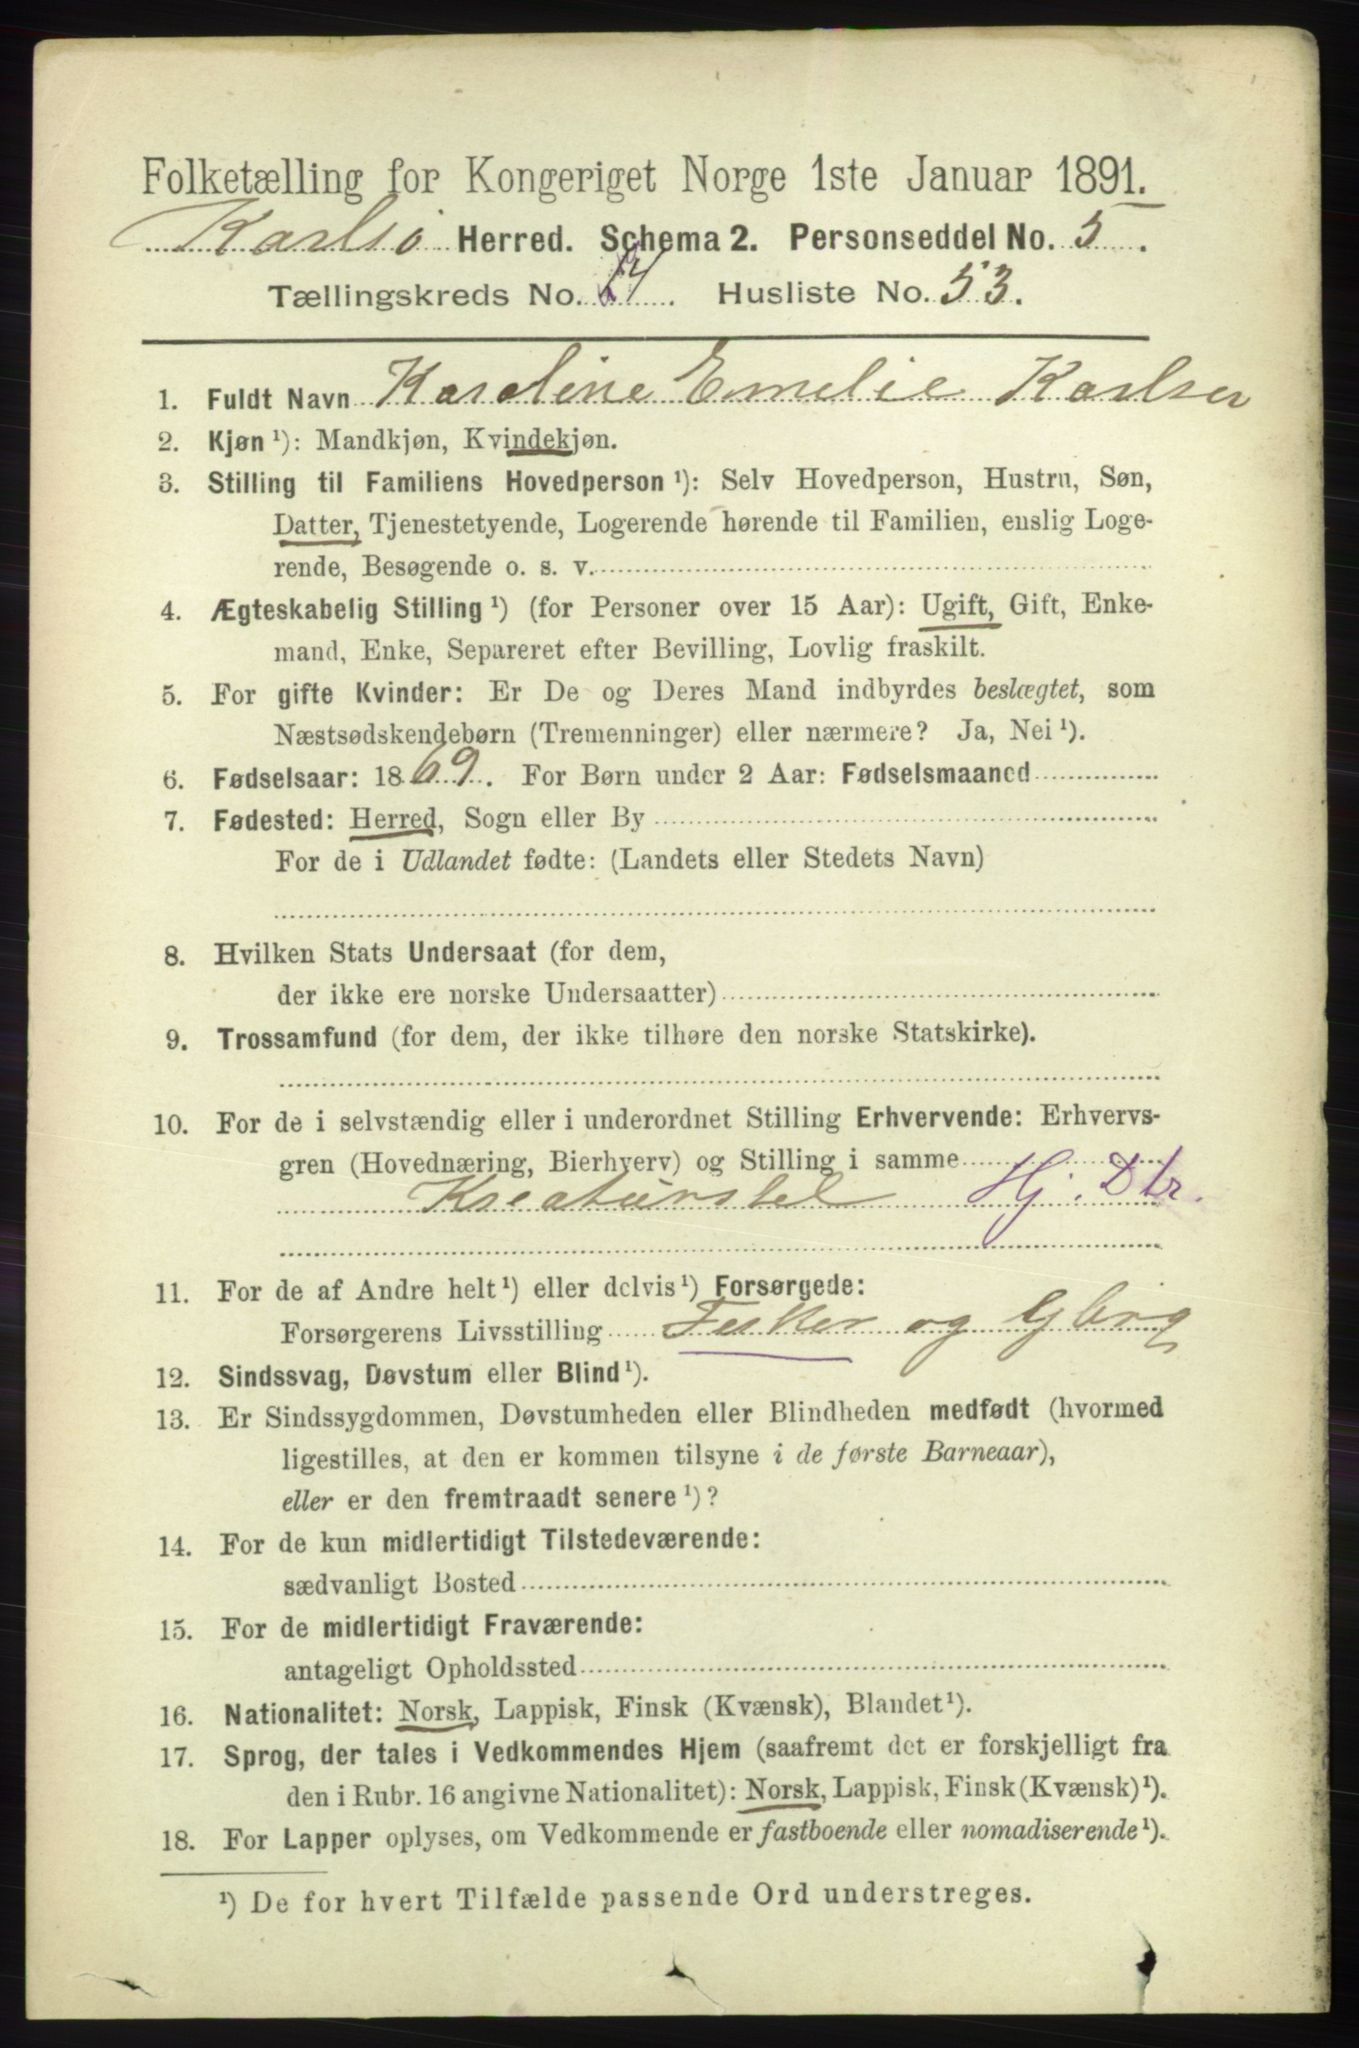 Folketælling for Kongeriget Norge 1ste Januar 1891.
Karlsö Herred. Schema 2. Personseddel No. 5.
Tællingskreds No. 14. Husliste No. 53.
1. Fuldt Navn Karoline Emelie Karlsen
2. Kjøn ¹): Mandkjøn, Kvindekjøn.
3. Stilling til Familiens Hovedperson ¹): Selv Hovedperson, Hustru, Søn,
Datter, Tjenestetyende, Logerende hørende til Familien, enslig Loge-
rende, Besøgende o. s. v.
4. Ægteskabelig Stilling ¹) (for Personer over 15 Aar): Ugift, Gift, Enke-
mand, Enke, Separeret efter Bevilling, Lovlig fraskilt.
5. For gifte Kvinder: Er De og Deres Mand indbyrdes beslægtet, som
Næstsødskendebørn (Tremenninger) eller nærmere? Ja, Nei ¹).
6. Fødselsaar: 1869. For Børn under 2 Aar: Fødselsmaaned
7. Fødested: Herred, Sogn eller By
For de i Udlandet fødte: (Landets eller Stedets Navn)
8. Hvilken Stats Undersaat (for dem,
der ikke ere norske Undersaatter)
9. Trossamfund (for dem, der ikke tilhøre den norske Statskirke).
10. For de i selvstændig eller i underordnet Stilling Erhvervende: Erhvervs-
gren (Hovednæring, Bierhverv) og Stilling i samme
Kreaturstel Hj. Dtr.
11. For de af Andre helt ¹) eller delvis ¹) Forsørgede:
Forsørgerens Livsstilling Fisker og Gbrg
12. Sindssvag, Døvstum eller Blind ¹).
13. Er Sindssygdommen, Døvstumheden eller Blindheden medfødt (hvormed
ligestilles, at den er kommen tilsyne i de første Barneaar),
eller er den fremtraadt senere ¹)?
14. For de kun midlertidigt Tilstedeværende:
sædvanligt Bosted
15. For de midlertidigt Fraværende:
antageligt Opholdssted
16. Nationalitet: Norsk, Lappisk, Finsk (Kvænsk), Blandet ¹).
17. Sprog, der tales i Vedkommendes Hjem (saafremt det er forskjelligt fra
den i Rubr. 16 angivne Nationalitet): Norsk, Lappisk, Finsk (Kvænsk) ¹).
18. For Lapper oplyses, om Vedkommende er fastboende eller nomadiserende ¹).
¹) De for hvert Tilfælde passende Ord understreges.